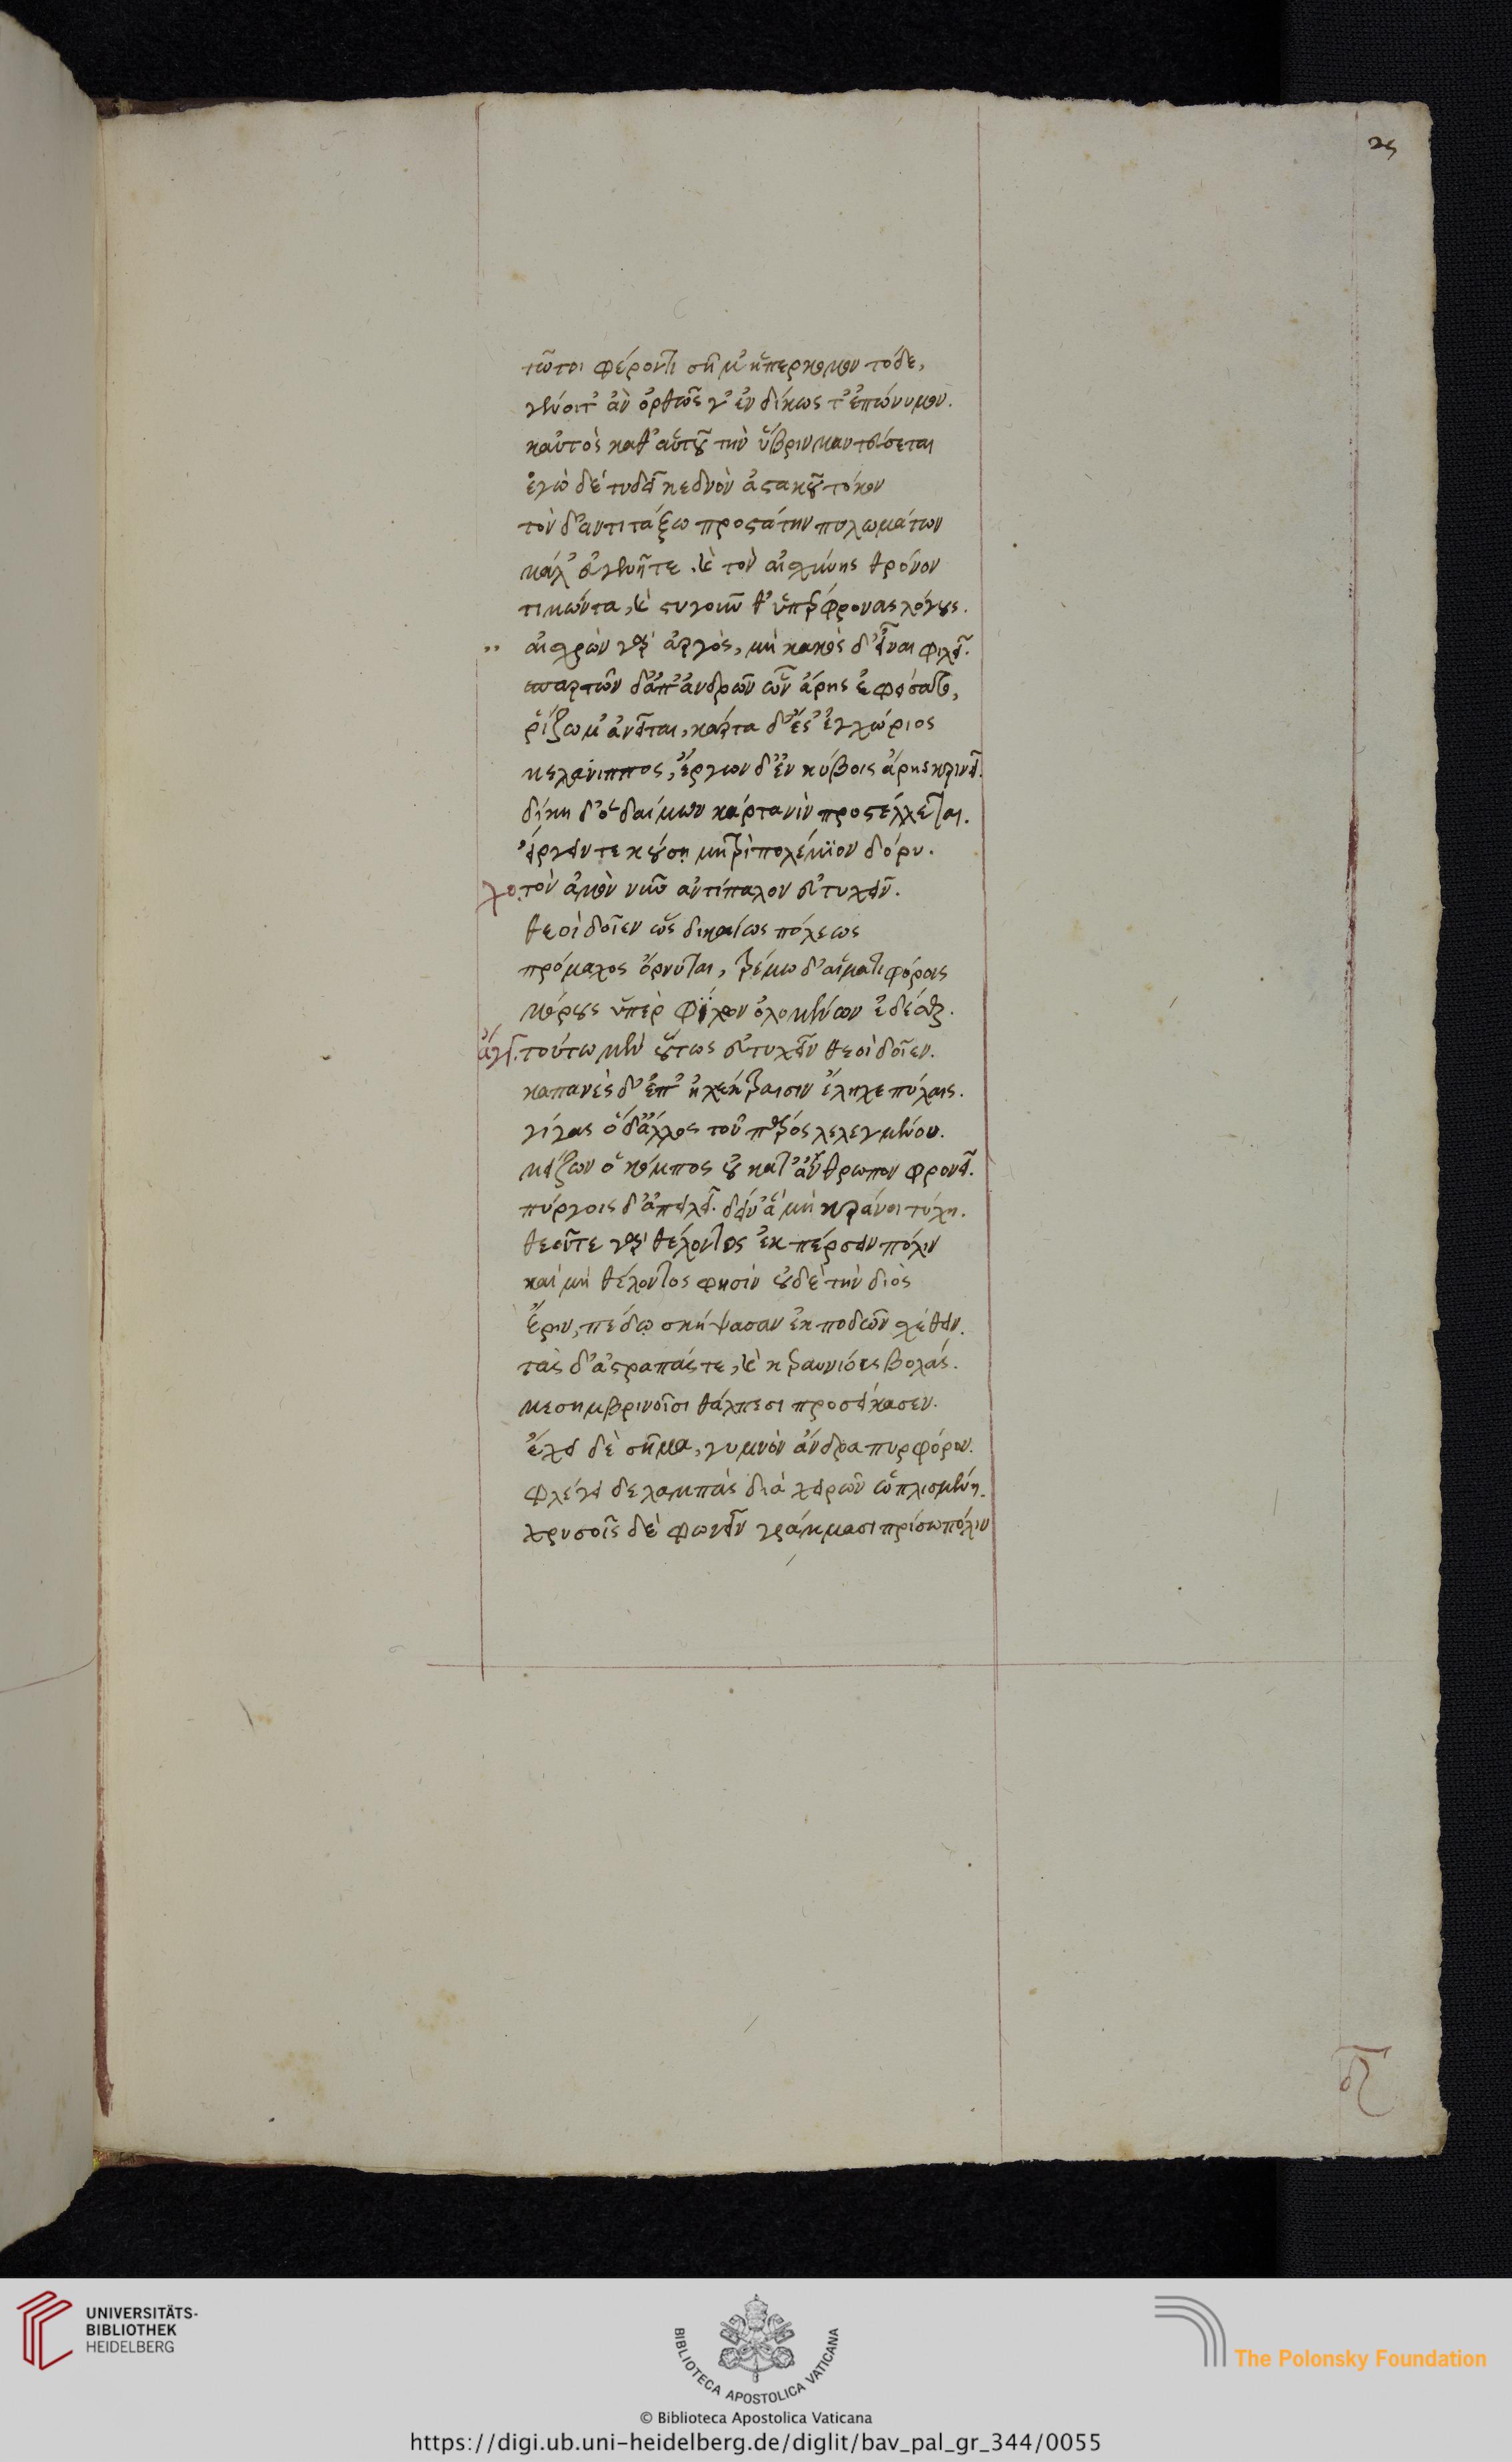 25
τῶτοι φέροντι σῆμ' ὑπέρκομον τόδε,
γένοιτ' ἂν ὀρθῶς γ' ἐνδίκως τ' ἐπώνυμον.
καὐτὸς καθ' αὑτοῦ τὴν ὕβριν μαντεύσεται
ἐγὼ δὲ τυδεῖ κεδνὸν ἀστακοῦ τόκον
τὸν δ' ἀντιτάξω προστάτην πυλωμάτων
μάλ' εὐγενῆ τε καὶ τὸν αἰσχύνης θρόνον
τιμῶντα, καὶ στυγοῦνθ' ὑπέρφρονας λόγους.
αἰσχρῶν γὰρ ἀργὸς, μὴ κακὸς δ' εἶναι φιλεῖ.
σπαρτῶν δ' ἀπ' ἀνδρῶν ὧν ἄρης ἐφείσατο,
ῥίζωμ' ἀνεῖται, κάρτα δ' ἔστ' ἐγχώριος
μελάνιππος, ἔργων δ' ἐν κύβοις ἄρης κρινεῖ.
δίκη δ' ὁ δαίμων κάρτα νιν προστέλλεται.
εἴργειν τεκούσῃ μητρὶ πολέμιον δόρυ.
χο. τὸν ἀμὸν νῦν ἀντίπαλον εὐτυχεῖν.
θεοὶ δοῖεν ὡς δικαίως πόλεως
πρόμαχος ὄρνυται, τρέμω δ' αἱματηφόρους
μόρους ὑπὲρ φίλων ὀλομένων ἰδέσθαι.
ἄγγ. τούτω μὲν οὕτως εὐτυχεῖν θεοὶ δοῖεν.
καπανεὺς δ' ἐπ' ἠλέκτραισιν εἴληχε πύλαις.
γίγας ὁδ' ἄλλος τοῦ πάρος λελεγμένου.
μείζων ὁ κόμπος οὐ κατ' ἄνθρωπον φρονεῖ.
πύργοις δ' ἀπειλεῖ δείν' ἃ μὴ κράνοι τύχη.
θεοῦ τε γὰρ θέλοντος ἐκπέρσειν πόλιν
καὶ μὴ θέλοντος φησὶν οὐδὲ τὴν διὸς
ἔριν, πέδῳ σκήψασαν ἐκποδῶν σχέθειν.
τὰς δ' ἀστραπάς τε, καὶ κεραυνίους βολάς.
μεσημβρινοῖσι θάλπεσι προσείκασεν.
ἔχει δὲ σῆμα, γυμνὸν ἄνδρα πυρφόρον.
φλέγει δε λαμπὰς διὰ χειρῶν ὡπλισμένη.
χρυσοῖς δὲ φωνεῖν γράμμασι πρίσω πόλιν
UNIVERSITÄTS-
BIBLIOTHEK
HEIDELBERG
BIBLIOTECA APOSTOLICA VATICANA
The Polonsky Foundation
© Biblioteca Apostolica Vaticana
https://digi.ub.uni-heidelberg.de/diglit/bav_pal_gr_344/0055